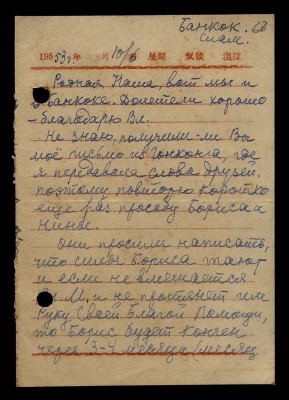 Банкок. 68
Сиам.
1953г年 月10/IX日 星期 氣候 溫度
Родная Наша, вот мы и
в Банкоке. Долетели хорошо
– благодарю Вл.
Не знаю, получили-ли Вы
моё письмо из Гонконга, где
я передавала слова друзей,
поэтому повторю коротко
еще раз просьбу Бориса и
Нины.
Они просили написать,
что силы Бориса тают
и если не вмешается
М. и не протянет ему
Руку Своей Благой Помощи,
то Борис будет кончен
через 3-4 месяца (месяц